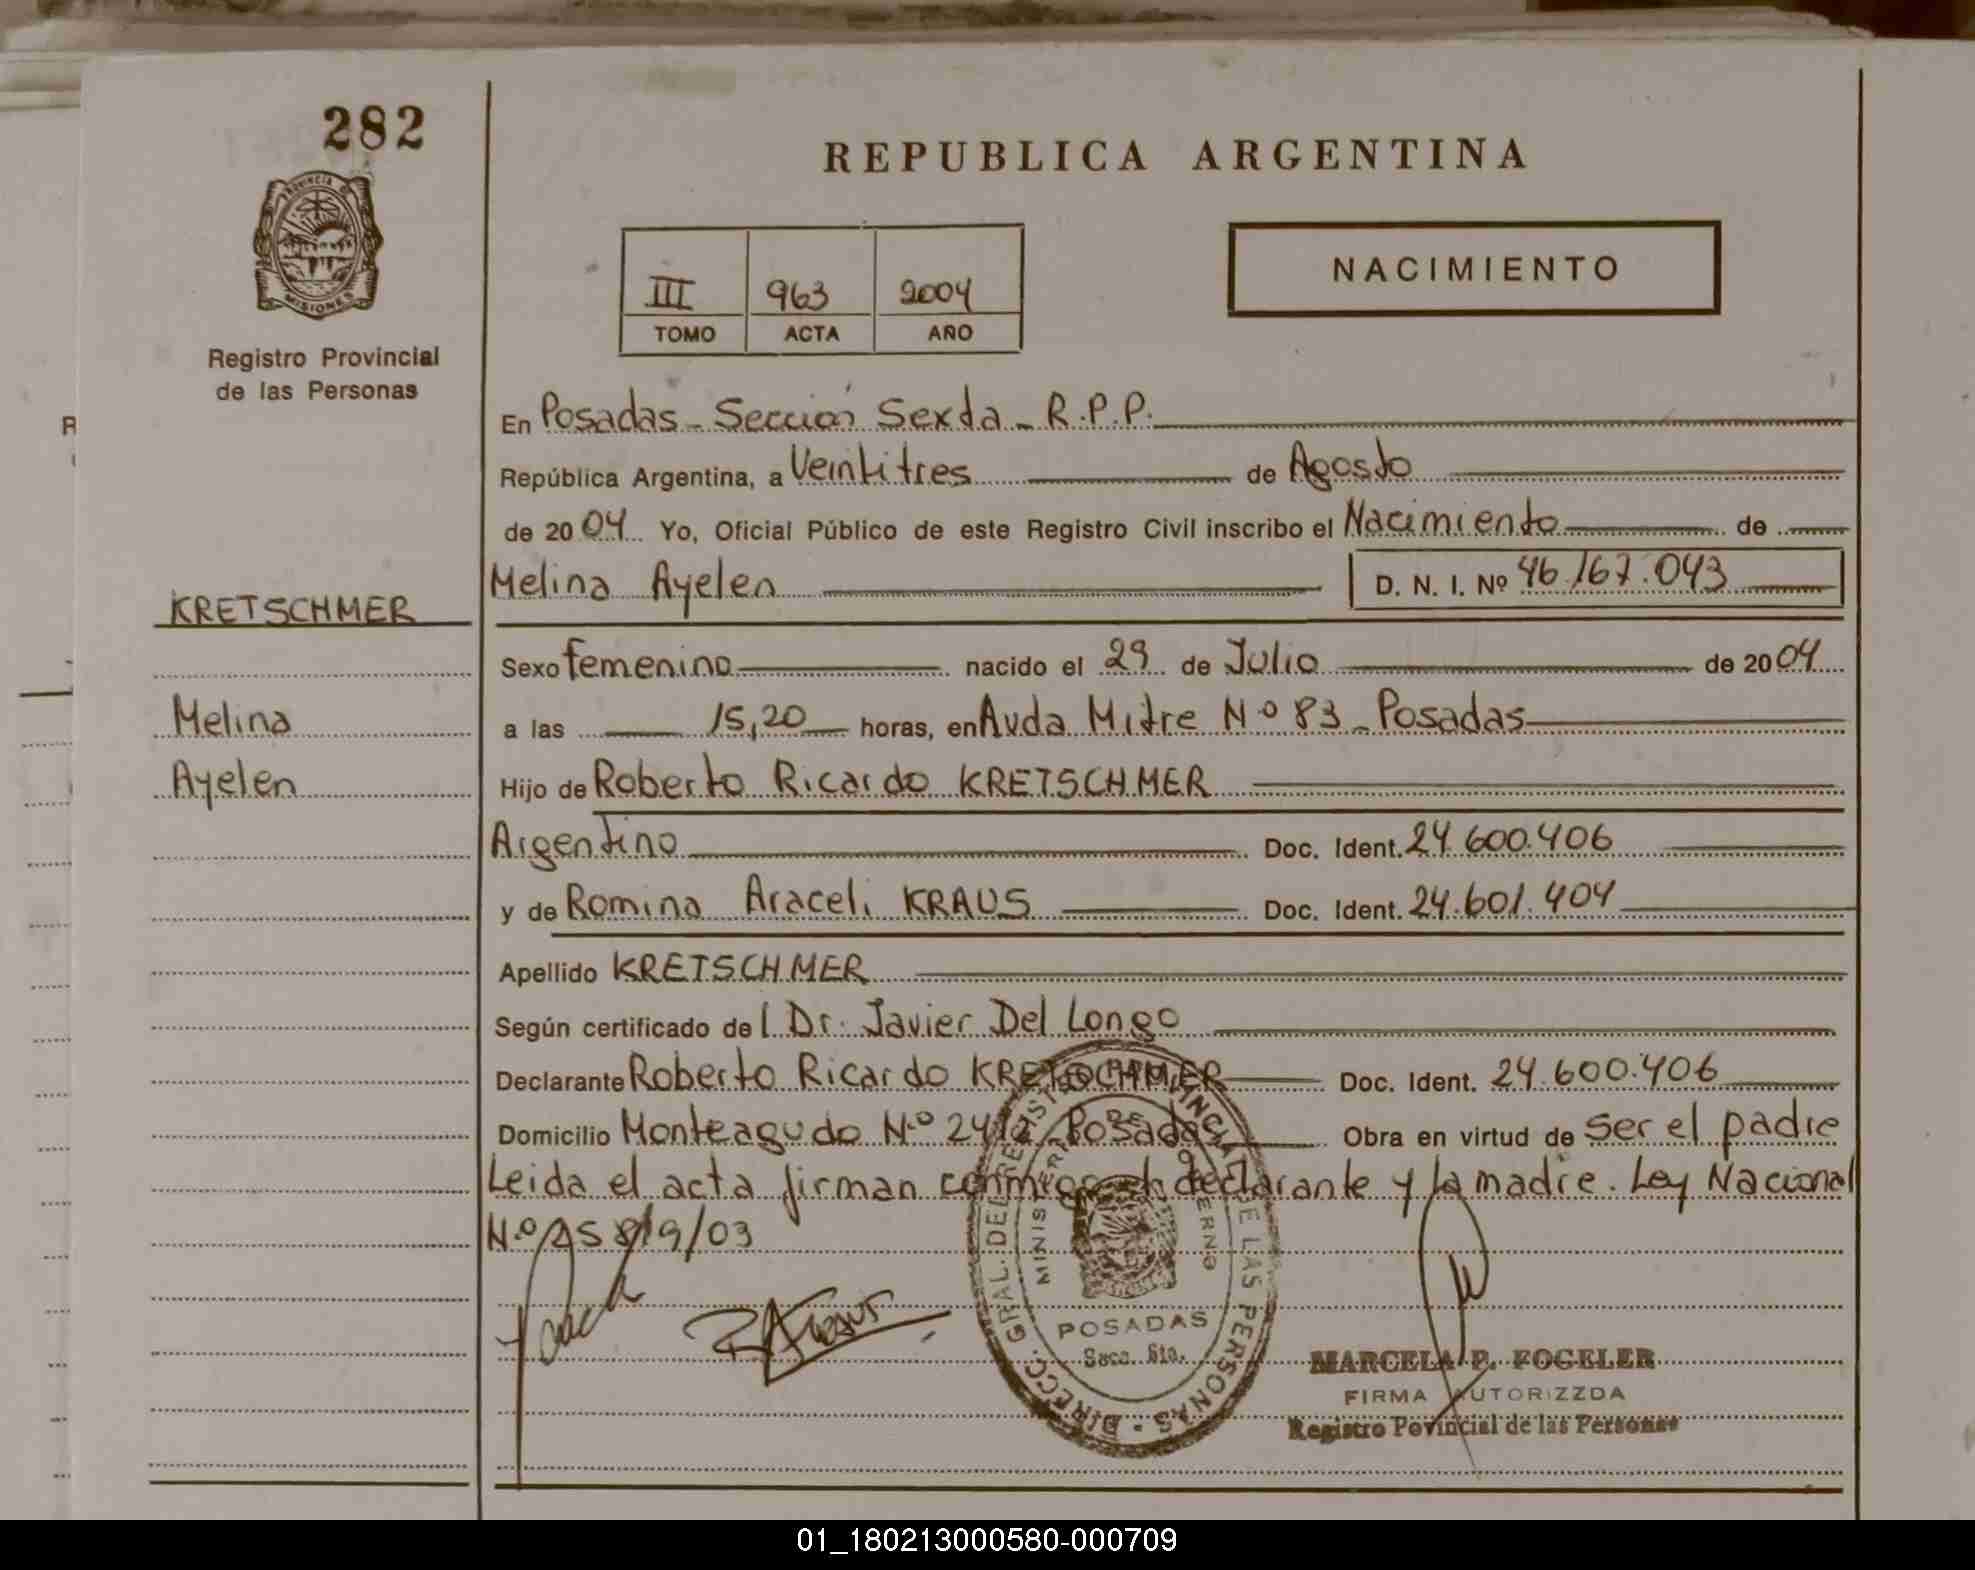 282
PROVINCIA DE
MISIONES
Registro Provincial
de las Personas
REPUBLICA ARGENTINA
III 963 2004
TOMO ACTA AÑO
NACIMIENTO
En Posadas - Sección Sexta - R.P.P.
República Argentina, a Veintitres de Agosto
de 2004 Yo, Oficial Público de este Registro Civil inscribo el Nacimiento de
Melina Ayelen D. N. I. Nº 46.167.043
KRETSCHMER
Melina
Ayelen
Sexo femenino nacido el 29 de Julio de 2004
a las 15,20 horas, en Avda Mitre Nº 83 - Posadas
Hijo de Roberto Ricardo KRETSCHMER
Argentino Doc. Ident. 24.600.406
y de Romina Araceli KRAUS Doc. Ident. 24.601.404
Apellido KRETSCHMER
Según certificado del Dr. Javier Del Longo
Declarante Roberto Ricardo KRETSCHMER Doc. Ident. 24.600.406
Domicilio Monteagudo Nº Posadas Obra en virtud de ser el padre
Leida el acta firman conmigo el declarante y la madre. Ley Nacional
Nº 25819/03
DIRECC. GRAL. DEL REGISTRO PROVINCIAL DE LAS PERSONAS
MINISTERIO DE GOBIERNO
POSADAS
Secc. 6ta.
MARCELA P. FOGELER
FIRMA AUTORIZZDA
Registro Povincial de las Personas
01_180213000580-000709